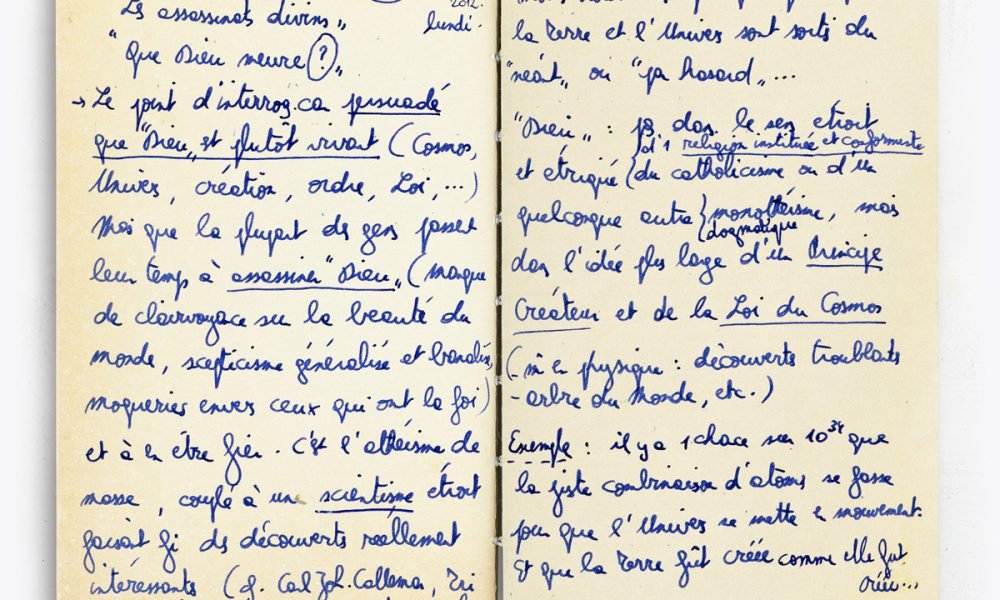 2012.
"Les assassinats divins"
lundi.
"Que Dieu meure (?)"
→ Le point d'interrog. car persuadé
que "Dieu" est plutôt vivant (Cosmos,
Univers, création, ordre, Loi, ...)
Mais que la plupart des gens passent
leur temps à assassiner "Dieu" (manque
de clairvoyance sur la beauté du
monde, scepticisme généralisé et banalisé,
moqueries envers ceux qui ont la foi)
et à en être fier. C'est l'athéisme de
masse, couplé à un scientisme étroit
faisant fi des découvertes réellement
intéressants (cf. Carl Joh. Calleman,
la Terre et l'Univers sont sortis du
"néant" ou "par hasard" ...
"Dieu" : pas dans le sens étroit
religion instituée et conformiste
et étriqué (du catholicisme ou d'un
quelconque autre monothéisme, mais
dogmatique
dans l'idée plus large d'un Principe
Créateur et de la Loi du Cosmos
(m̂ en physique : découvertes troublantes
- arbre du Monde, etc.)
Exemple : il y a 1 chance sur 10³⁴ que
la juste combinaison d'atomes se fasse
pour que l'Univers se mette en mouvement.
Et que la Terre fût créée comme elle fut
créée...